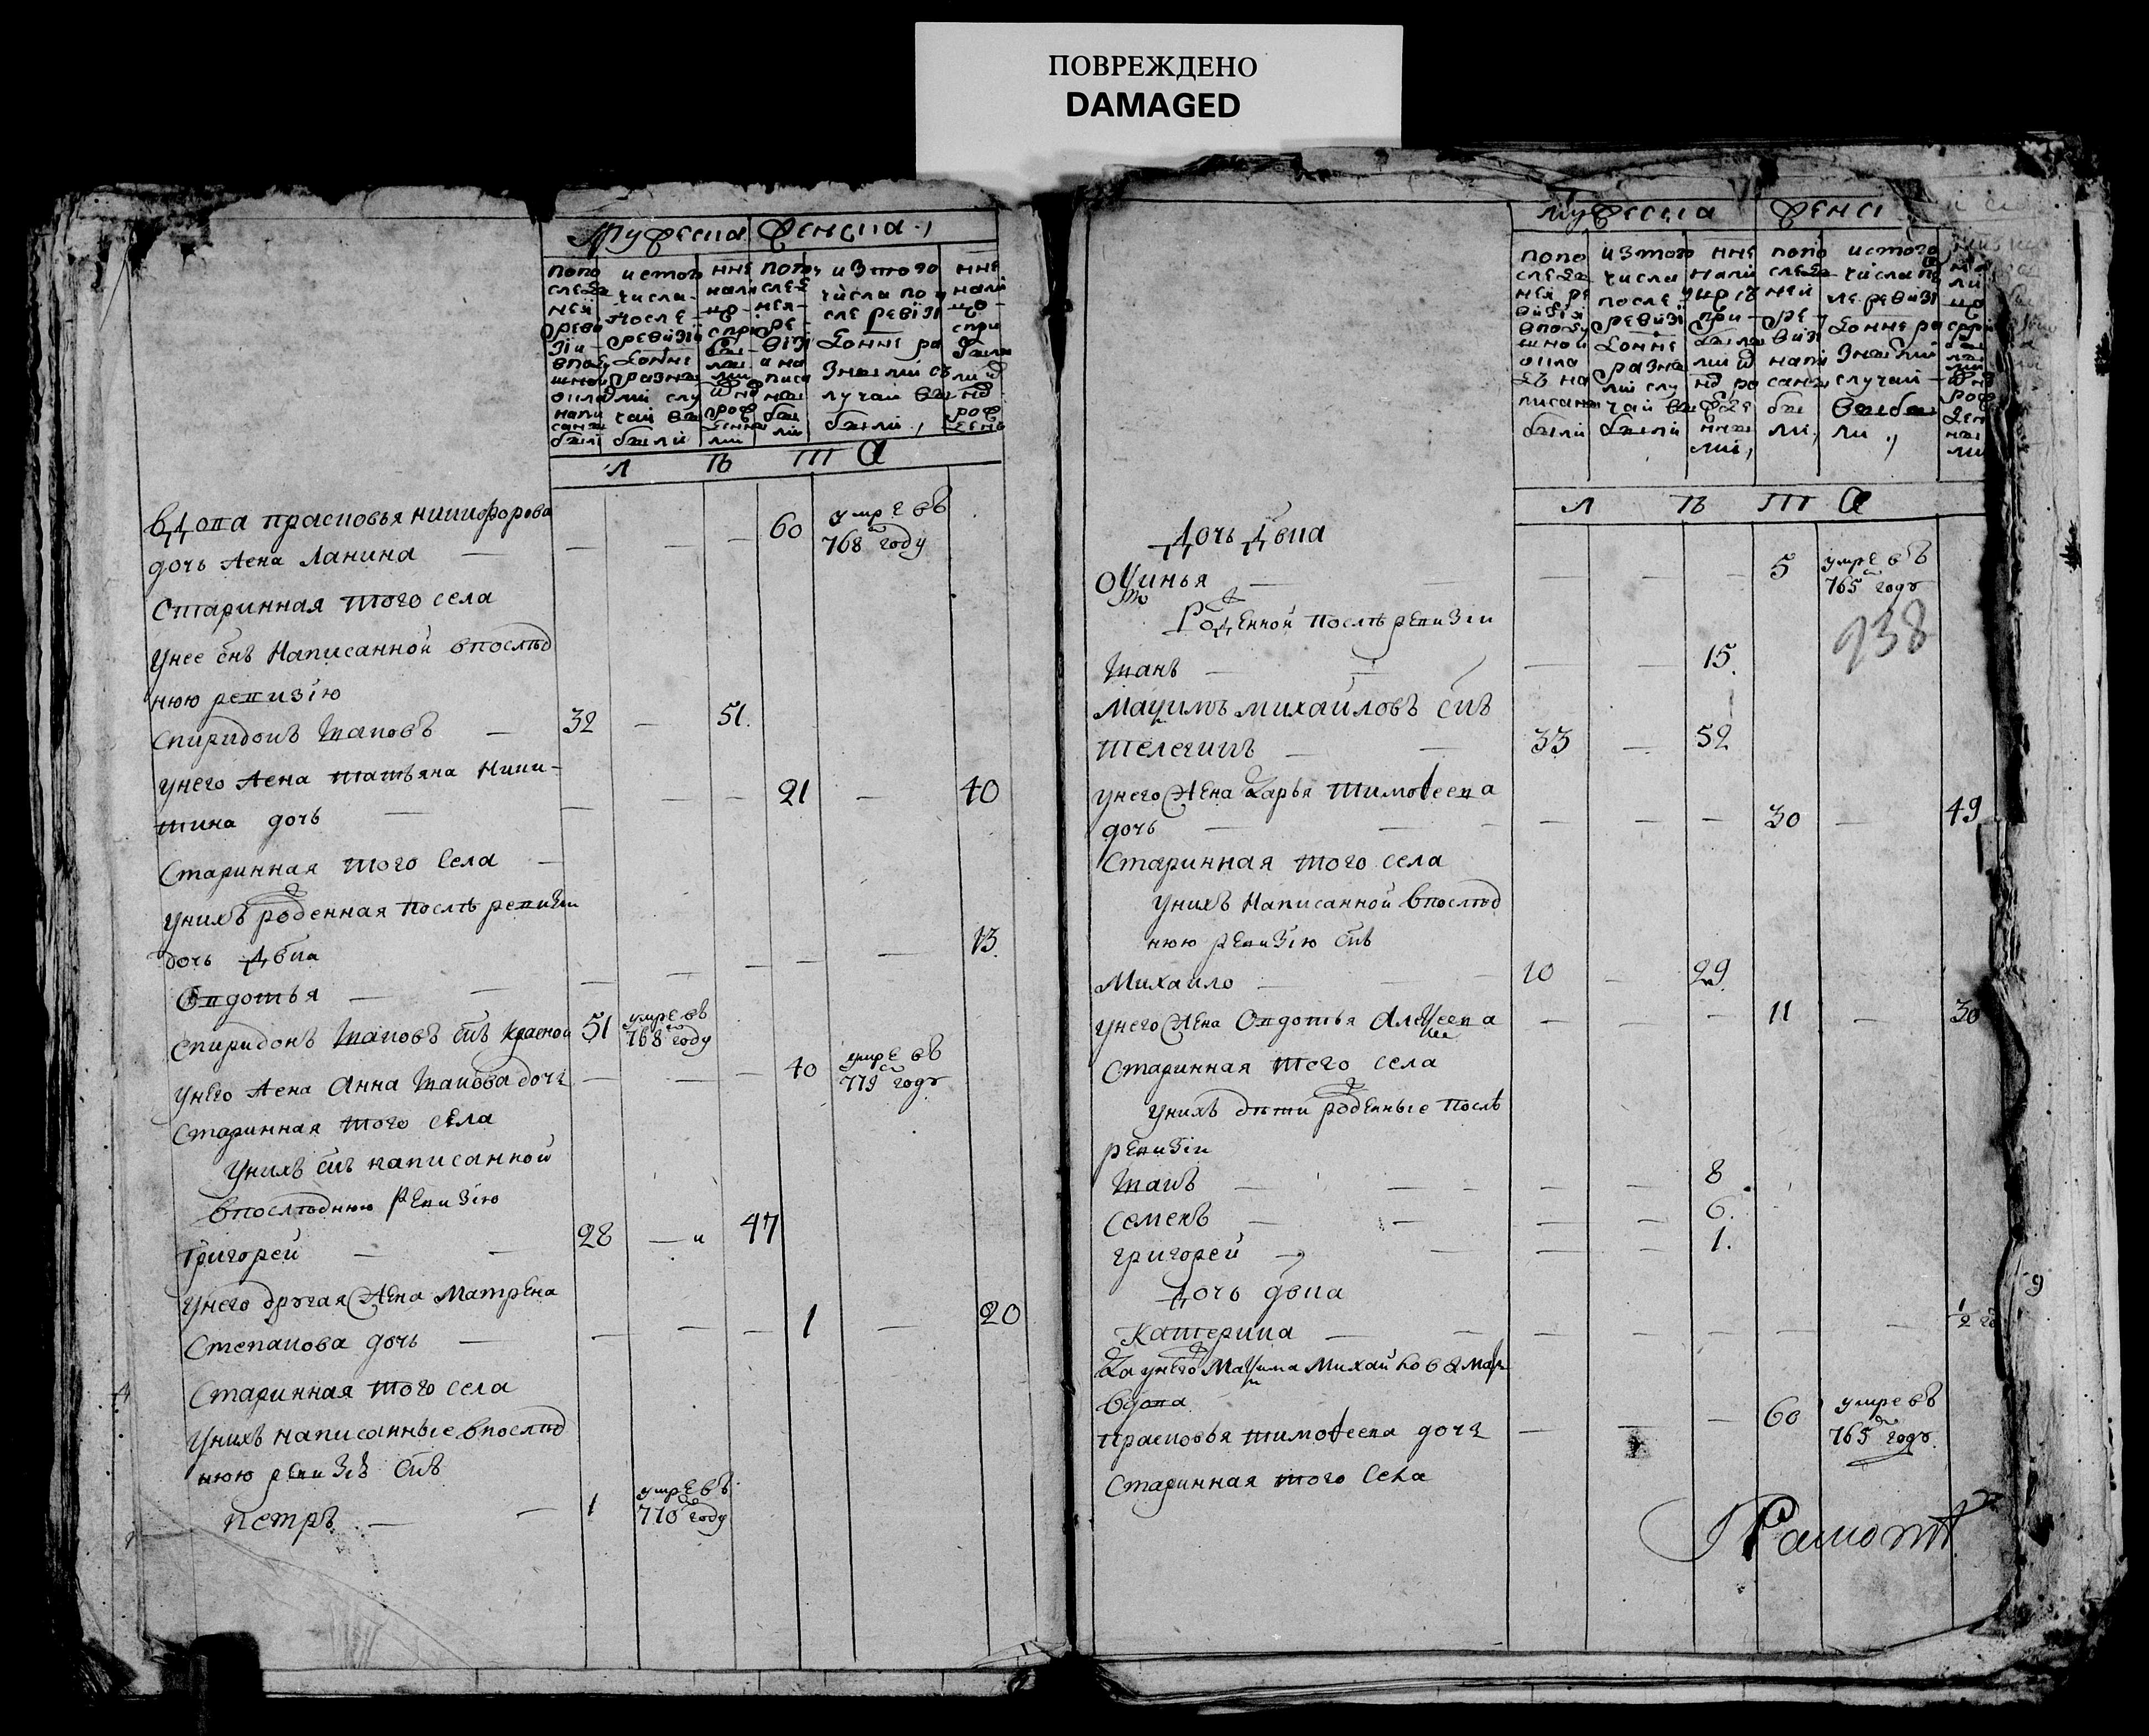 ПОВРЕЖДЕНО
DAMAGED
Мужеска Женска
попо
следней
ревизии
в подушной
оклад
написаны
были
ис того
числа
после
ревизии
до нне
разны
ми слу
чаи вы
были
нне
нали
цо
с при
были
ми и
рожденны
ми
по пос
ледней
ре
визи
и на
писа
ны бы
ли
из того
числа по
сле ревизи
до нне ра
зными с
лучаи вы
были
нне
нали
цо
с при
были
ми
Л Ѣ Т А
Вдова прасковья никифорова
дочь жена Ланина — — — — 60 умре въ 768м году
Старинная того села
У нее снъ Написанной впослѣд
нюю ревизїю
Спиридонъ Ивановъ — 32 — 51
У него жена татьяна Ники-
тина дочь — — — — 21 — 40
Старинная того села —
У нихъ рожденная послѣ ревизїи
дочь двка
Овдотья — — — — — — — 13
Спиридонъ Ивановъ снъ красной 51 умре въ 768м году
У него жена Анна Иванова дочь — — — 40 умре въ 779м годъ
Старинная того села
У нихъ снъ написанной
впослѣднюю ревизїю
Григорей — — 28 — 47
У него другая жена Матрена
Степанова дочь — — — — 1 — 20
Старинная того села
У нихъ написанные впослѣд
нюю ревизїю снъ
петръ — — 1 умре въ 770м году
Мужеска Женск
попо
следне
ней ре
визїи
в подушной
окла
дъ на
писаны
были
из того
числа
после
ревизїи
до нне
разны
ми слу
чаи вы
были
нне
нали
цо съ
при
былы
ми и
рожде
нны
ми
попо
следней
ре
визи
написаны
бы
ли
ис того
числа по
сле ревизи
до нне ра
зными
случаи
выбы
ли
Л Ѣ Т А
Дочь двка
Оксинья — — — — 5 умре въ 765м годъ
938
Рожденной послѣ ревизїи
Иванъ — — — — 15
Максимъ михаиловъ снъ
телегинъ — — 33 — 52
У него жена Дарья тимоѳеева
дочь — — — — — — 30 — 49
Старинная того села
У нихъ Написанной впослѣд
нюю ревизїю снъ
Михаило — — 10 — 29
У него жена Овдотья Алексеева — — — 11 — 30
Старинная того села
У нихъ дѣти рожденные послѣ
ревизїи
Иванъ — — — — 8
Семенъ — — — — 6
григорей — — — — 1
Дочь двка
Катерина — — — — — — — — 1/2 го
Да у него Максима Михайлова мать
вдова
прасковья тимоѳеева дочь — — — 60 умре въ 765м годъ
Старинная того села